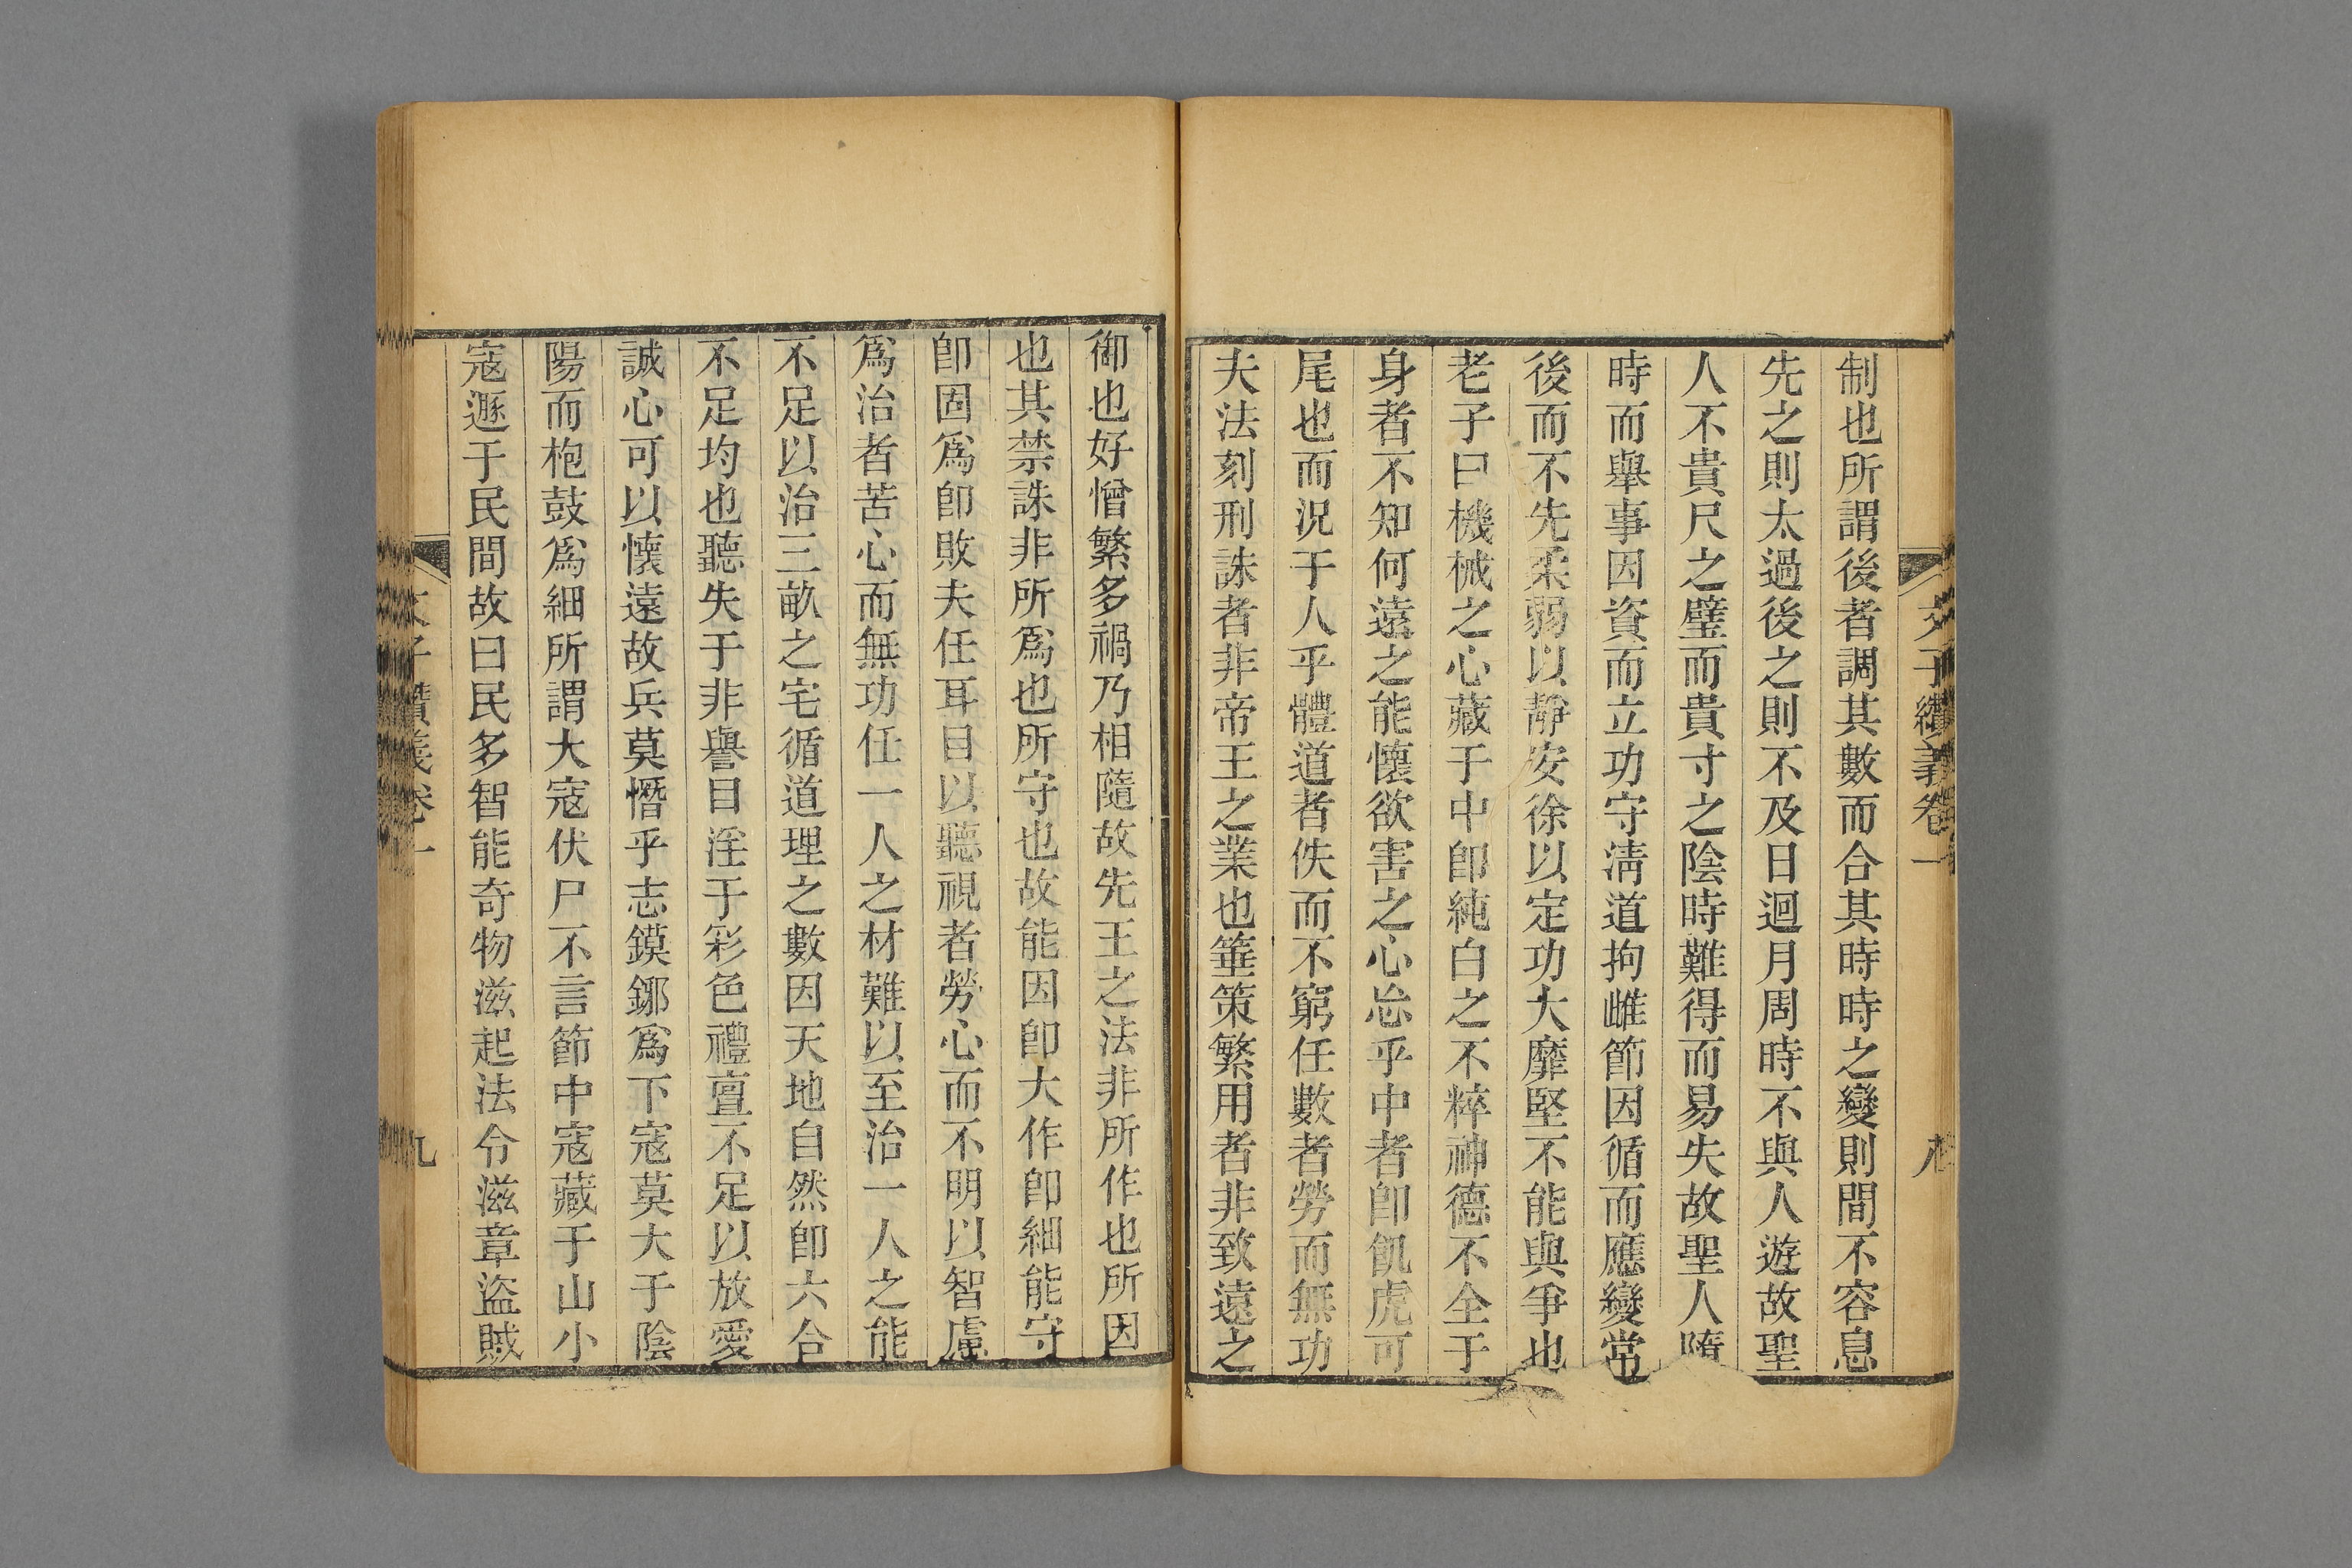 文子纘義卷一 八
制也所謂後者調其數而合其時時之變則間不容息
先之則太過後之則不及日迴月周時不與人遊故聖
人不貴尺之璧而貴寸之陰時難得而易失故聖人隨
時而舉事因資而立功守淸道拘雌節因循而應變常
後而不先柔弱以靜安徐以定功大靡堅不能與爭也
老子曰機械之心藏于中卽純白之不粹神德不全于
身者不知何遠之能懷欲害之心忘乎中者卽飢虎可
尾也而況于人乎體道者佚而不窮任數者勞而無功
夫法刻刑誅者非帝王之業也箠策繁用者非致遠之
御也好憎繁多禍乃相隨故先王之法非所作也所因
也其禁誅非所爲也所守也故能因卽大作卽細能守
卽固爲卽敗夫任耳目以聽視者勞心而不明以智慮
爲治者苦心而無功任一人之材難以至治一人之能
不足以治三畝之宅循道理之數因天地自然卽六合
不足均也聽失于非譽目淫于彩色禮亶不足以放愛
誠心可以懷遠故兵莫憯乎志鏌鋣爲下寇莫大于陰
陽而枹鼓爲細所謂大寇伏尸不言節中寇藏于山小
寇遯于民間故曰民多智能奇物滋起法令滋章盜賊
文子纘義卷一 九